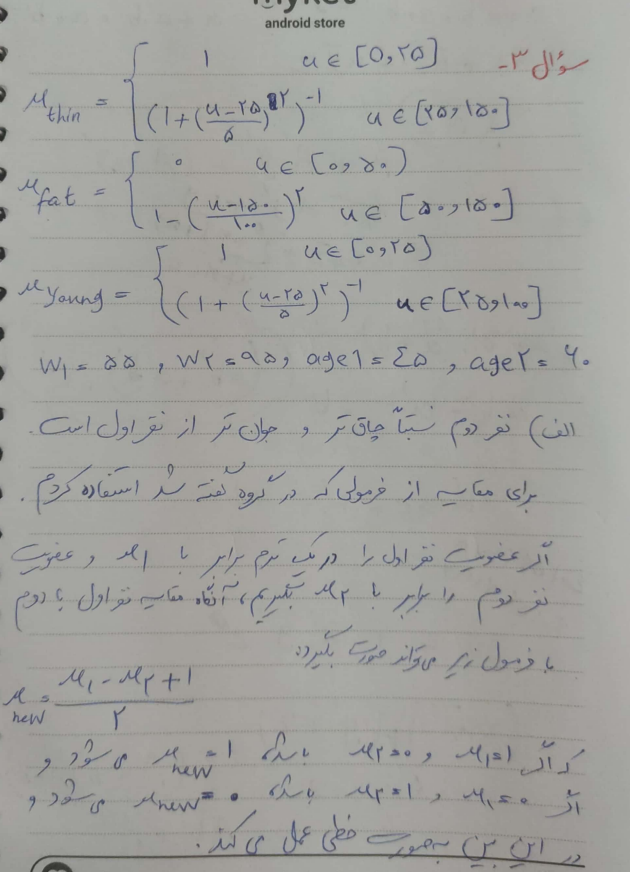 myket
android store
سؤال ۳-
μ_thin = { 1   u ∈ [0, ۲۵]
(1 + ((u - ۲۵)/۵)^۲)^-1   u ∈ [۲۵, ۱۵۰]
μ_fat = { ۰   u ∈ [۰, ۵۰)
1 - ((u - ۱۵۰)/۱۰۰)^۲   u ∈ [۵۰, ۱۵۰]
μ_Young = { 1   u ∈ [۰, ۲۵]
(1 + ((u - ۲۵)/۵)^۲)^-1   u ∈ [۲۵, ۱۰۰]
W۱ = ۵۵ , W۲ = ۹۵, age1 = ٤۵ , age۲ = ۶۰
الف) نفر دوم نسبتاً چاق تر و جوان تر از نفر اول است.
برای مقایسه از فرمولی که در گروه گفته شد استفاده کردم.
اگر عضویت نفر اول را در یک ترم برابر با μ۱ و عضویت
نفر دوم را برابر با μ۲ بگیریم، آنگاه مقایسه نفر اول با دوم
با فرمول زیر می‌تواند صورت بگیرد:
μ_new = (μ۱ - μ۲ + 1)/۲
که اگر μ۱=1 و μ۲=۰ باشد، μ_new = 1 می شود و
اگر μ۱=۰ و μ۲=1 باشد، μ_new = ۰ می شود و
در این بین به صورت خطی عمل می کند.